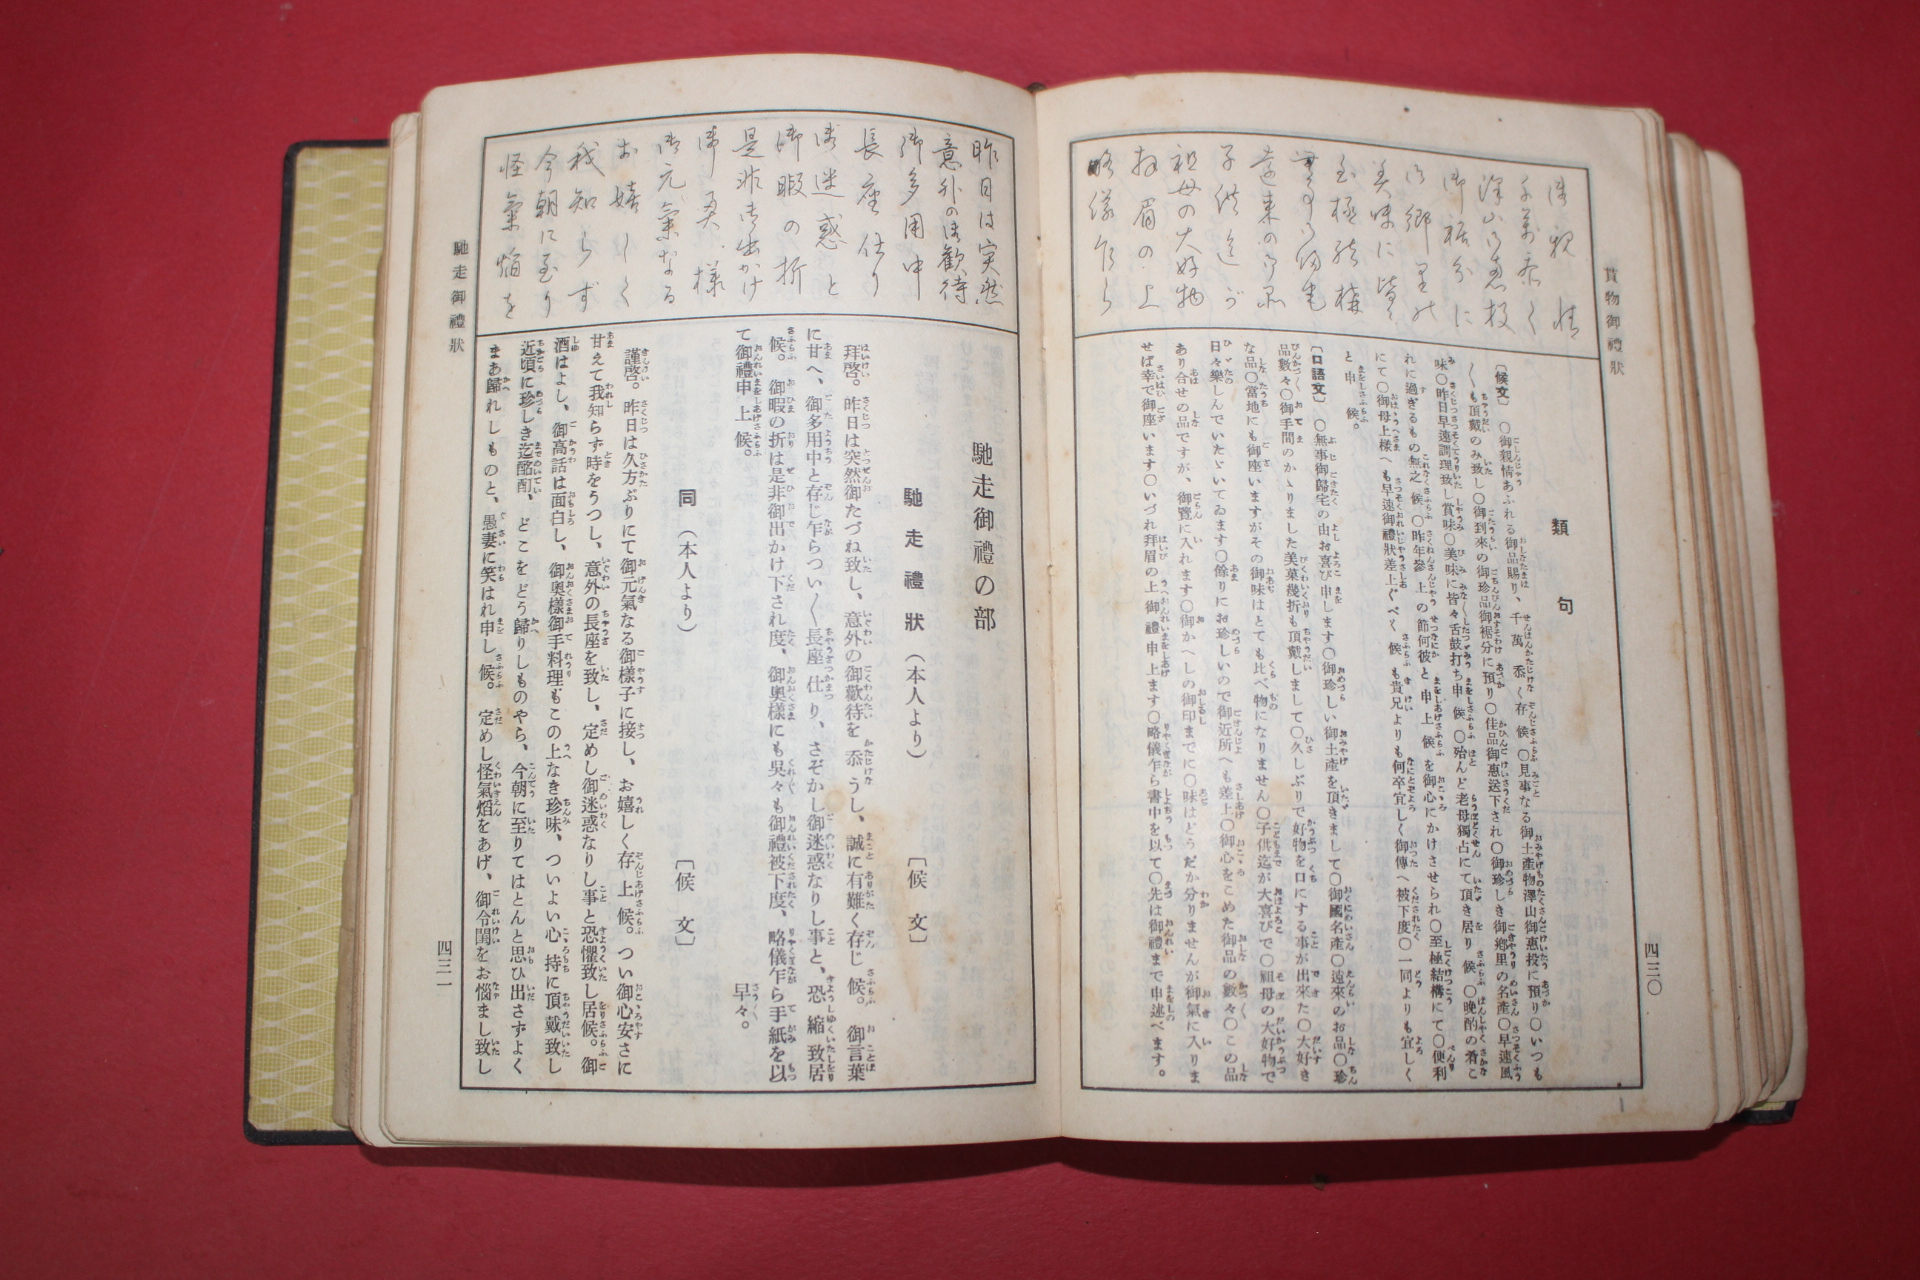 貰物御禮狀
四三〇
御親情
千萬忝く
澤山御恵投
御裾分に
御郷里の
美味に皆々
至極結構
遠来の御品
子供迄が
祖母の大好物
拜眉の上
略儀乍ら
類句
〔候文〕〇御親情あふれる御品賜り、千萬忝く存候〇見事なる御土產物澤山御惠投に預り〇いつも
〳〵も頂戴のみ致し〇御到來の御珍品御裾分に預り〇佳品御惠送下され〇御珍しき御鄕里の名產〇早速風
味〇昨日早速調理致し賞味〇美味に皆々舌鼓打ち申候〇殆んど老母獨占にて頂き居り候〇晩酌の肴こ
れに過ぎるもの無之候〇昨年參上の節何彼と申上候を御心にかけさせられ〇至極結構にて〇便利
にて〇御母上樣へも早速御禮狀差上ぐべく候も貴兄よりも何卒宜しく御傳へ被下度〇一同よりも宜しく
と申候。
〔口語文〕〇無事御歸宅の由お喜び申します〇御珍しい御土產を頂きまして〇御國名產〇遠來のお品〇珍
品數々〇御手間のかゝりました美菓幾折も頂戴しまして〇久しぶりで好物を口にする事が出來た〇大好き
な品〇當地にも御座いますがその御味はとても比べ物になりません〇子供迄が大喜びで〇祖母の大好物で
日々樂しんでいたゞいてゐます〇餘りにお珍しいので御近所へも差上〇御心をこめた御品の數々〇この品
あり合せの品ですが、御覽に入れます〇御かへしの御印までに〇味はどうだか分りませんが御氣に入りま
せば幸で御座います〇いづれ拜眉の上御禮申上ます〇略儀乍ら書中を以て〇先は御禮まで申述べます。
昨日は突然
意外の御歡待
御多用中
長座仕り
御迷惑と
御暇の折
是非御出かけ
御奥樣
御元氣なる
お嬉しく
我知らず
今朝に至り
怪氣焰を
馳走御禮の部
馳走禮狀（本人より）〔候文〕
拜啓。昨日は突然御たづね致し、意外の御歡待を忝うし、誠に有難く存じ候。御言葉
に甘へ、御多用中と存じ乍らつい〳〵長座仕り、さぞかし御迷惑なりし事と、恐縮致居
候。御暇の折は是非御出かけ下され度、御奥樣にも吳々も御禮被下度、略儀乍ら手紙を以
て御禮申上候。早々。
同（本人より）〔候文〕
謹啓。昨日は久方ぶりにて御元氣なる御樣子に接し、お嬉しく存上候。つい御心安さに
甘えて我知らず時をうつし、意外の長座を致し、定めし御迷惑なりし事と恐懼致し居候。御
酒はよし、御高話は面白し、御奧樣御手料理もこの上なき珍味、ついよい心持に頂戴致し
近頃に珍しき迄酩酊、どこをどう歸りしものやら、今朝に至りてはとんと思ひ出さずよく
まあ歸れしものと、愚妻に笑はれ申し候。定めし怪氣焰をあげ、御令閨をお惱まし致し
馳走御禮狀
四三一